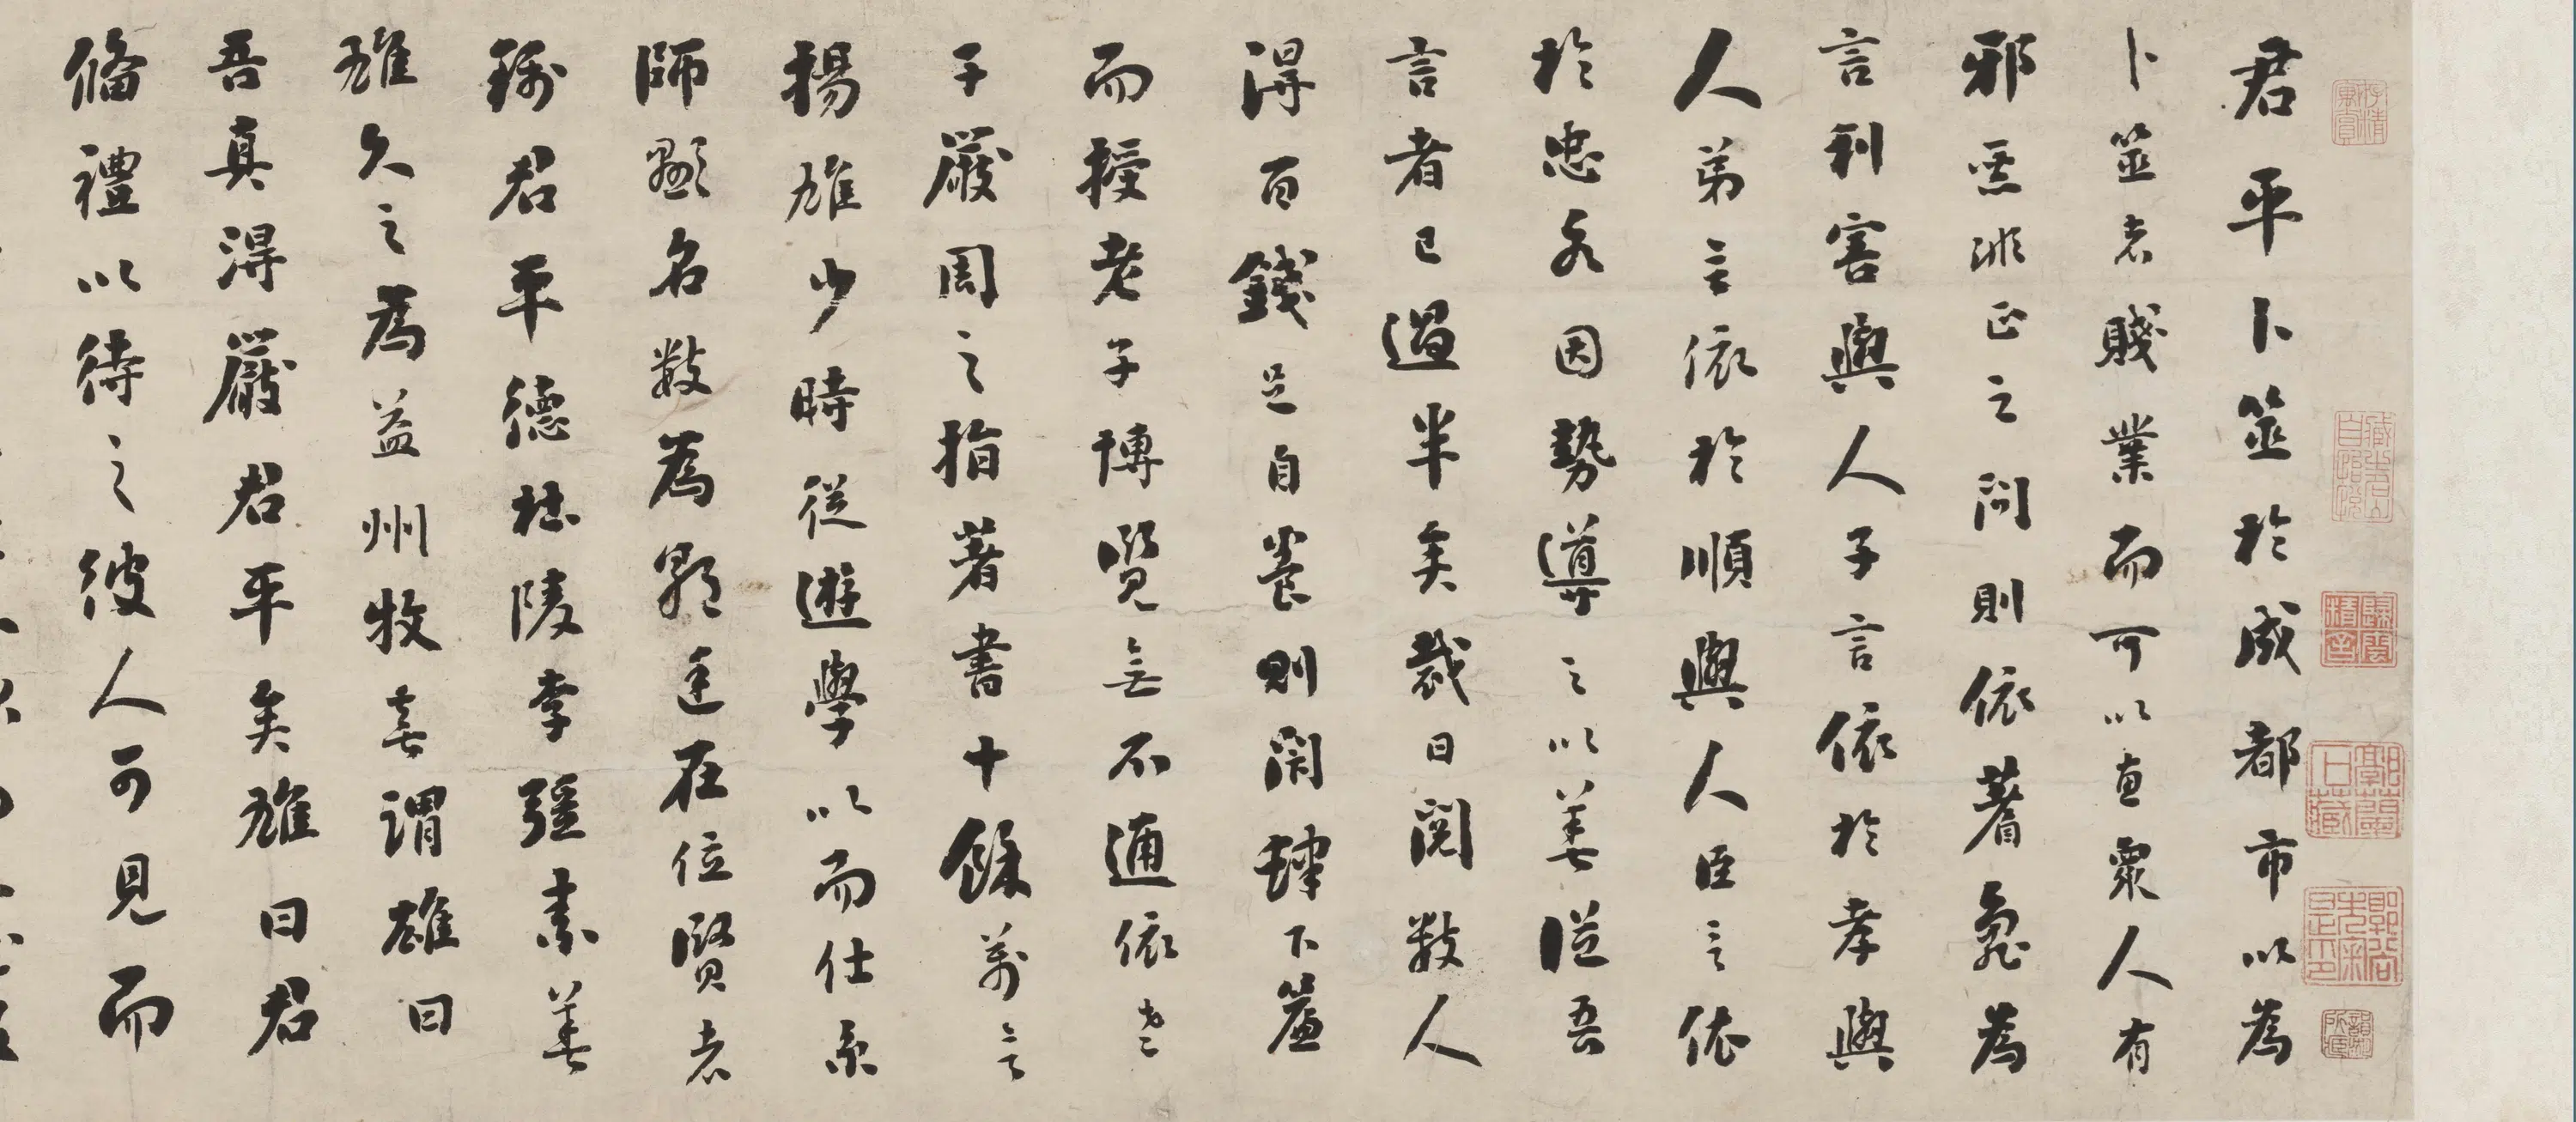 君平卜筮於成都市以為
卜筮者賤業而可以惠眾人有
邪惡非正之問則依蓍龜為
言利害與人子言依於孝與
人弟言依於順與人臣言依
於忠各因勢導之以善從吾
言者已過半矣裁日閱數人
得百錢足自養則閉肆下簾
而授老子博覽無不通依老
子嚴周之指著書十餘萬言
揚雄少時從遊學以而仕京
師顯名數為朝廷在位賢者
稱君平德杜陵李彊素善
雄久之為益州牧喜謂雄曰
吾真得嚴君平矣雄曰君
備禮以待之彼人可見而